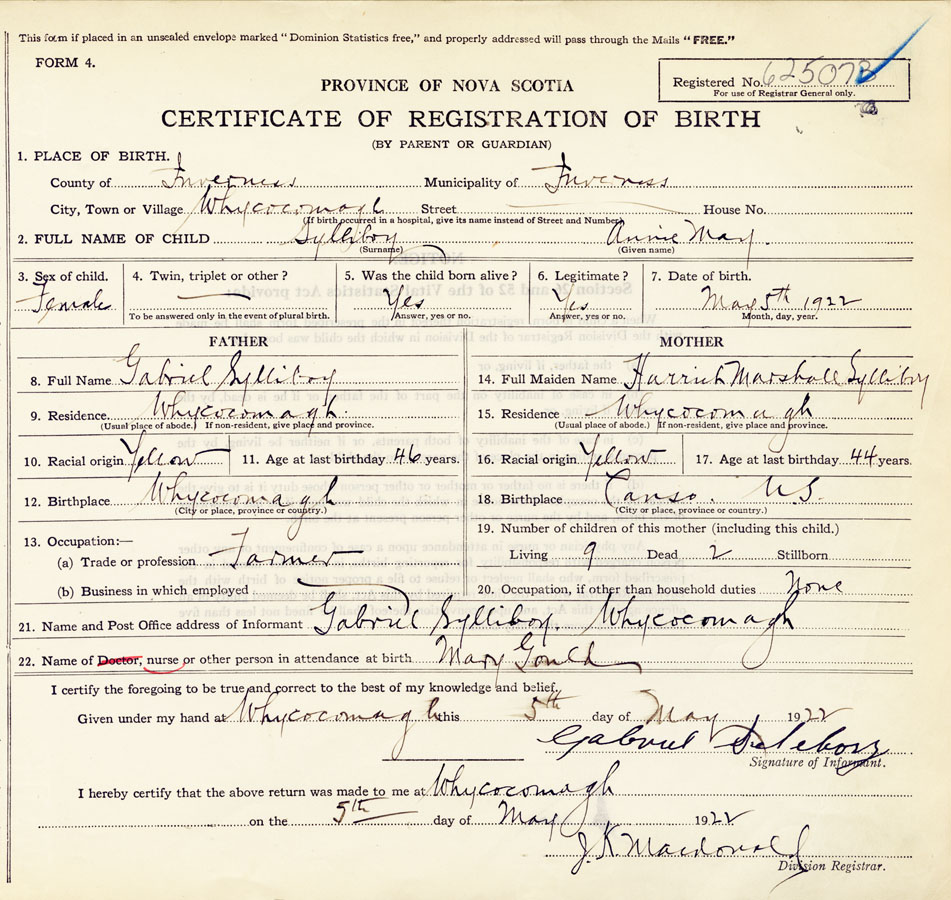 This form if placed in an unsealed envelope marked "Dominion Statistics free," and properly addressed will pass through the Mails "FREE."
FORM 4.
Registered No. 625073
For use of Registrar General only.
PROVINCE OF NOVA SCOTIA
CERTIFICATE OF REGISTRATION OF BIRTH
(BY PARENT OR GUARDIAN)
1. PLACE OF BIRTH.
County of Inverness Municipality of Inverness
City, Town or Village Whycocomagh Street House No.
(If birth occurred in a hospital, give its name instead of Street and Number)
2. FULL NAME OF CHILD Sylliboy Annie May.
(Surname) (Given name)
3. Sex of child. 4. Twin, triplet or other? 5. Was the child born alive? 6. Legitimate? 7. Date of birth.
Female Yes Yes May 5th 1922
To be answered only in the event of plural birth. Answer, yes or no. Answer, yes or no. Month, day, year.
FATHER MOTHER
8. Full Name Gabriel Sylliboy 14. Full Maiden Name Harriet Marshall Sylliboy
9. Residence Whycocomagh. 15. Residence Whycocomagh
(Usual place of abode.) If non-resident, give place and province. (Usual place of abode.) If non-resident, give place and province.
10. Racial origin Yellow 11. Age at last birthday 46 years. 16. Racial origin Yellow 17. Age at last birthday 44 years.
12. Birthplace Whycocomagh 18. Birthplace Canso. N.S.
(City or place, province or country.) (City or place, province or country.)
13. Occupation:— 19. Number of children of this mother (including this child.)
(a) Trade or profession Farmer Living 9 Dead 2 Stillborn
(b) Business in which employed 20. Occupation, if other than household duties None
21. Name and Post Office address of Informant Gabriel Sylliboy. Whycocomagh
22. Name of Doctor, nurse or other person in attendance at birth Mary Gould
I certify the foregoing to be true and correct to the best of my knowledge and belief.
Given under my hand at Whycocomagh this 5th day of May 1922
Gabriel
Signature of Informant.
I hereby certify that the above return was made to me at Whycocomagh
on the 5th day of May 1922
J. K. Macdonald
Division Registrar.